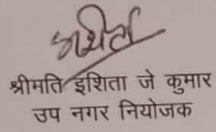 श्रीमति इशिता जे कुमार
उप नगर नियोजक